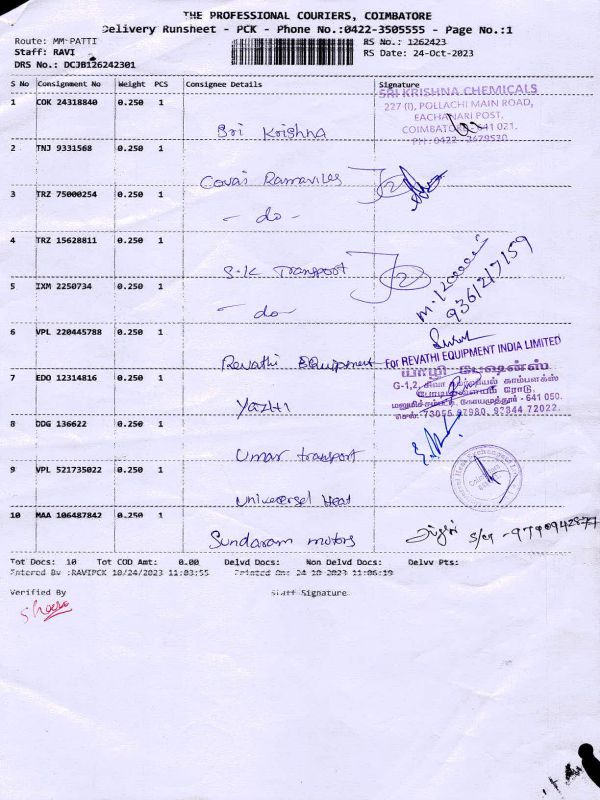 THE PROFESSIONAL COURIERS, COIMBATORE
Delivery Runsheet - PCK - Phone No.:0422-3505555 - Page No.:1
Route: MM-PATTI
RS No.: 1262423
Staff: RAVI
RS Date: 24-Oct-2023
DRS No.: DCJB126242301
S No Consignment No Weight PCS Consignee Details Signature
1 COK 24318840 0.250 1
Sri Krishna
SRI KRISHNA CHEMICALS
227 (I), POLLACHI MAIN ROAD,
EACHANARI POST,
COIMBATORE - 641 021.
PH:0422 - 2679530
2 TNJ 9331568 0.250 1
Covai Ramavilas
2
3 TRZ 75000254 0.250 1
- do -
4 TRZ 15628811 0.250 1
S.K Transport
2
9361217159
5 IXM 2250734 0.250 1
- do -
6 VPL 220445788 0.250 1
Revathi Equipment
For REVATHI EQUIPMENT INDIA LIMITED
7 EDO 12314816 0.250 1
Yazhi
யாழி பேஷன்ஸ்
G-1,2, காம்பளக்ஸ்
ரோடு,
கோயமுத்தூர் - 641 050.
செல்: 73055 87980, 97844 72022.
8 DDG 136622 0.250 1
Umar transport
9 VPL 521735022 0.250 1
Universel Heat
10 MAA 106487842 0.250 1
Sundaram motors
Tot Docs: 10 Tot COD Amt: 0.00 Delvd Docs: Non Delvd Docs: Delvv Pts:
Entered By :RAVIPCK 10/24/2023 11:03:55 Printed On: 24-10-2023 11:06:19
Verified By Staff Signature